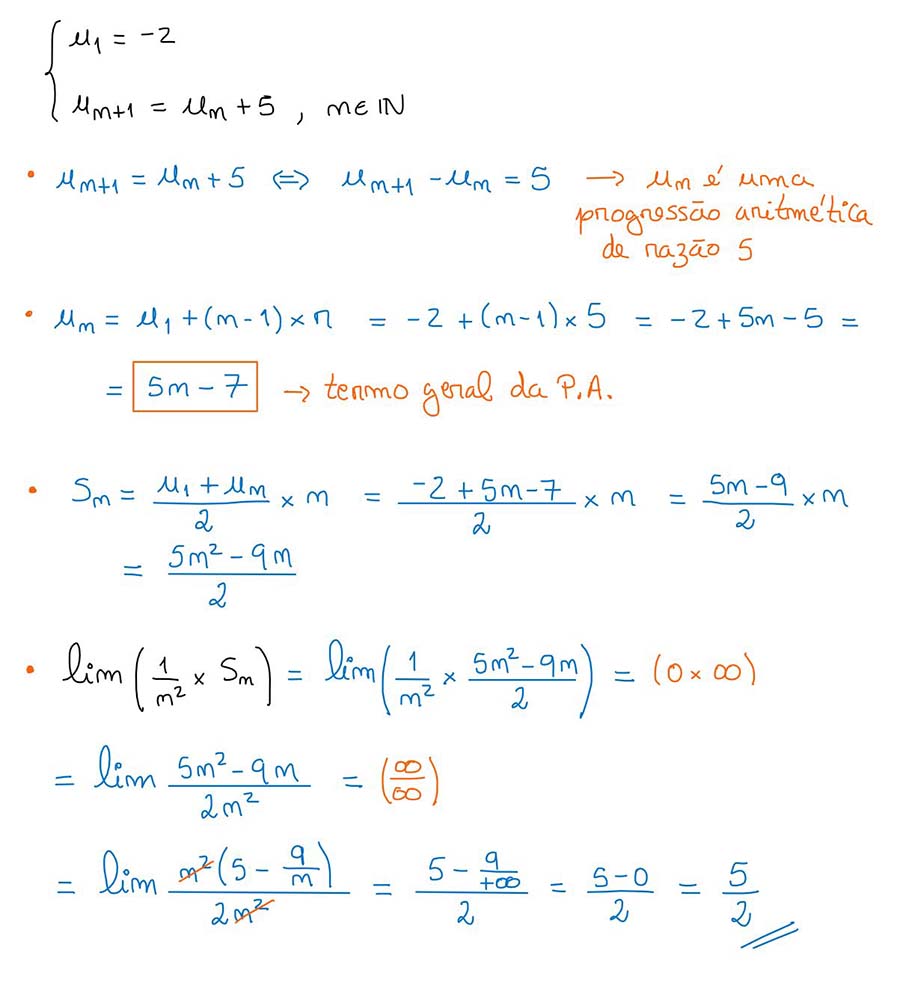 { u₁ = -2
uₙ₊₁ = uₙ + 5 , n ∈ ℕ
• uₙ₊₁ = uₙ + 5 ⇔ uₙ₊₁ - uₙ = 5 → uₙ é uma
progressão aritmética
de razão 5
• uₙ = u₁ + (n-1) × r = -2 + (n-1) × 5 = -2 + 5n - 5 =
= 5n - 7 → termo geral da P.A.
• Sₙ = (u₁ + uₙ)/2 × n = (-2 + 5n - 7)/2 × n = (5n - 9)/2 × n
= (5n² - 9n)/2
• lim(1/n² × Sₙ) = lim(1/n² × (5n² - 9n)/2) = (0 × ∞)
= lim (5n² - 9n)/(2n²) = (∞/∞)
= lim (n²(5 - 9/n))/(2n²) = (5 - 9/+∞)/2 = (5 - 0)/2 = 5/2